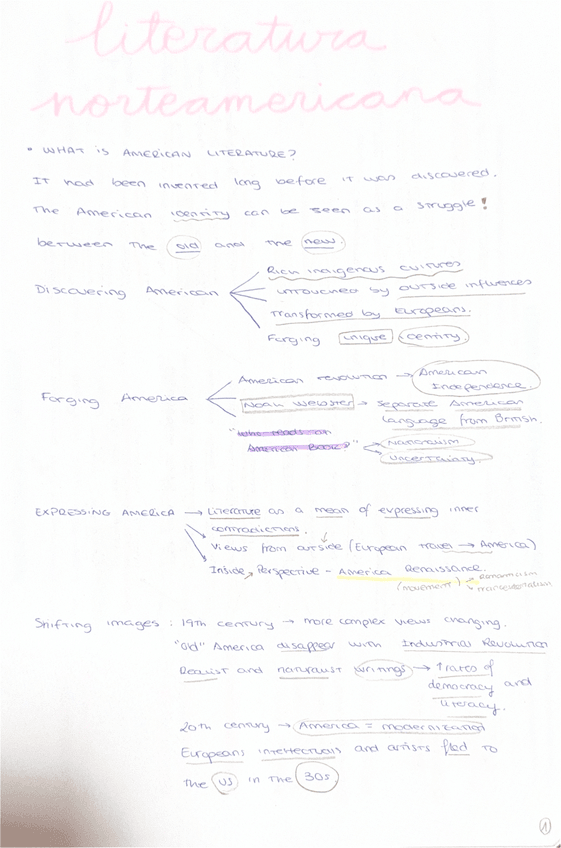 literatura
norteamericana
" WHAT IS AMERICAN LITERATURE?
IT had been invented long before it was discovered.
The American identity can be seen as a struggle!
between the old and the new.
Discovering American
Rich indigenous cultures
untouched by outside influences
Transformed by Europeans.
Forging unique identity.
Forging America
American revolution → American
Independence.
Noah Webster → separate American
language from British.
"Who reads an
American Book?"
Nationalism
Uncertainty.
EXPRESSING AMERICA → Literature as a mean of expressing inner
contradictions.
Views from outside (European travel → America)
Inside, Perspective - America Renaissance.
(movement)
Romanticism
Shifting images : 19th century → more complex views changing.
"Old" America disappear with Industrial Revolution
Realist and naturalist writings →
democracy and
literacy.
20th century → America = modernization
Europeans intellectuals and artists fled to
the US in the 30s
1